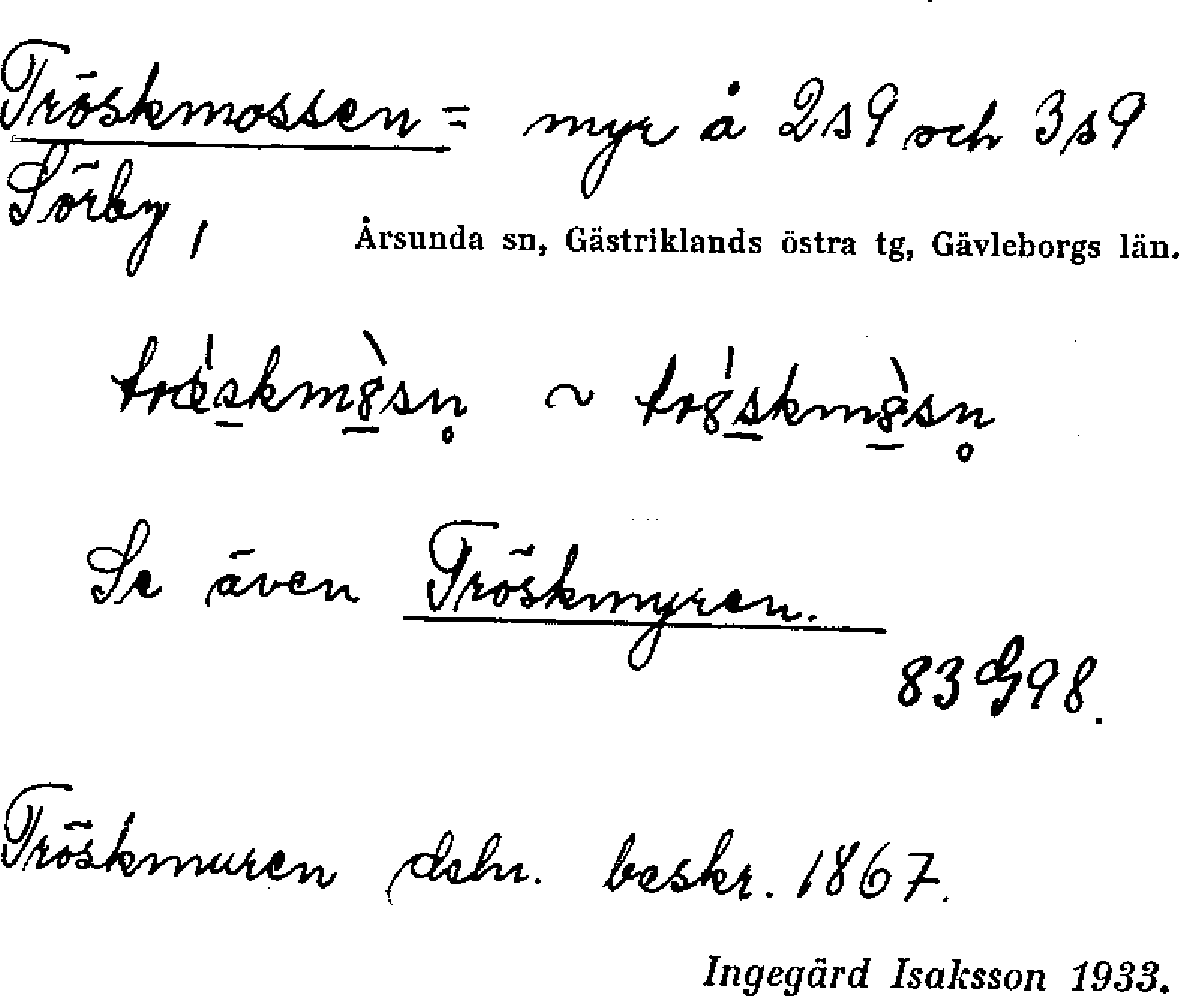 Tröskmossen = myr å 2s9 och 3s9
Sörby,
Årsunda sn, Gästriklands östra tg, Gävleborgs län.
Se även Tröskmyren.
83 G 98.
Tröskmuren deln. beskr. 1867.
Ingegärd Isaksson 1933.